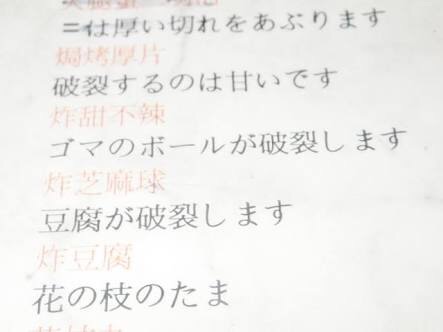 =は厚い切れをあぶります
焗烤厚片
破裂するのは甘いです
炸甜不辣
ゴマのボールが破裂します
炸芝麻球
豆腐が破裂します
炸豆腐
花の枝のたま